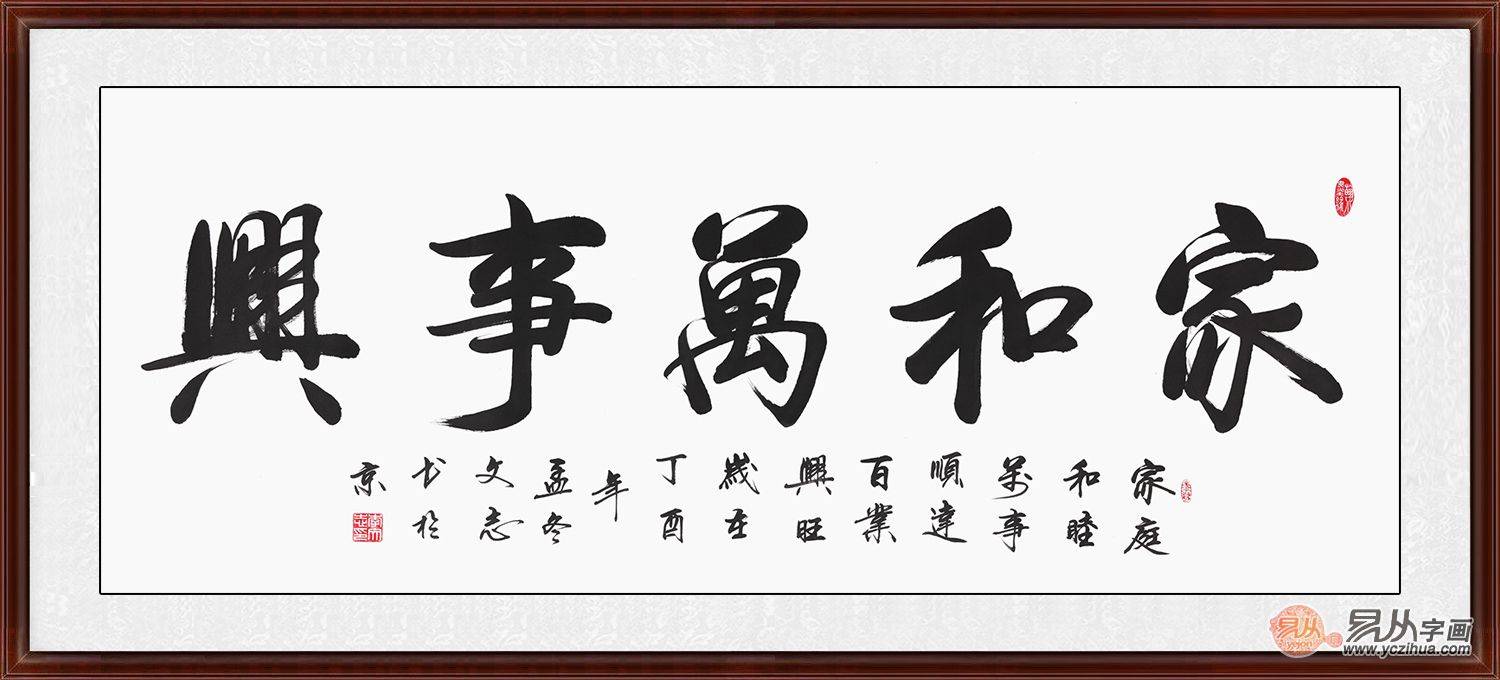 家和萬事興
家庭
和睦
萬事
順達
百業
興旺
歲在
丁酉
年
孟冬
文志
书於
京
易从字画
www.yczihua.com